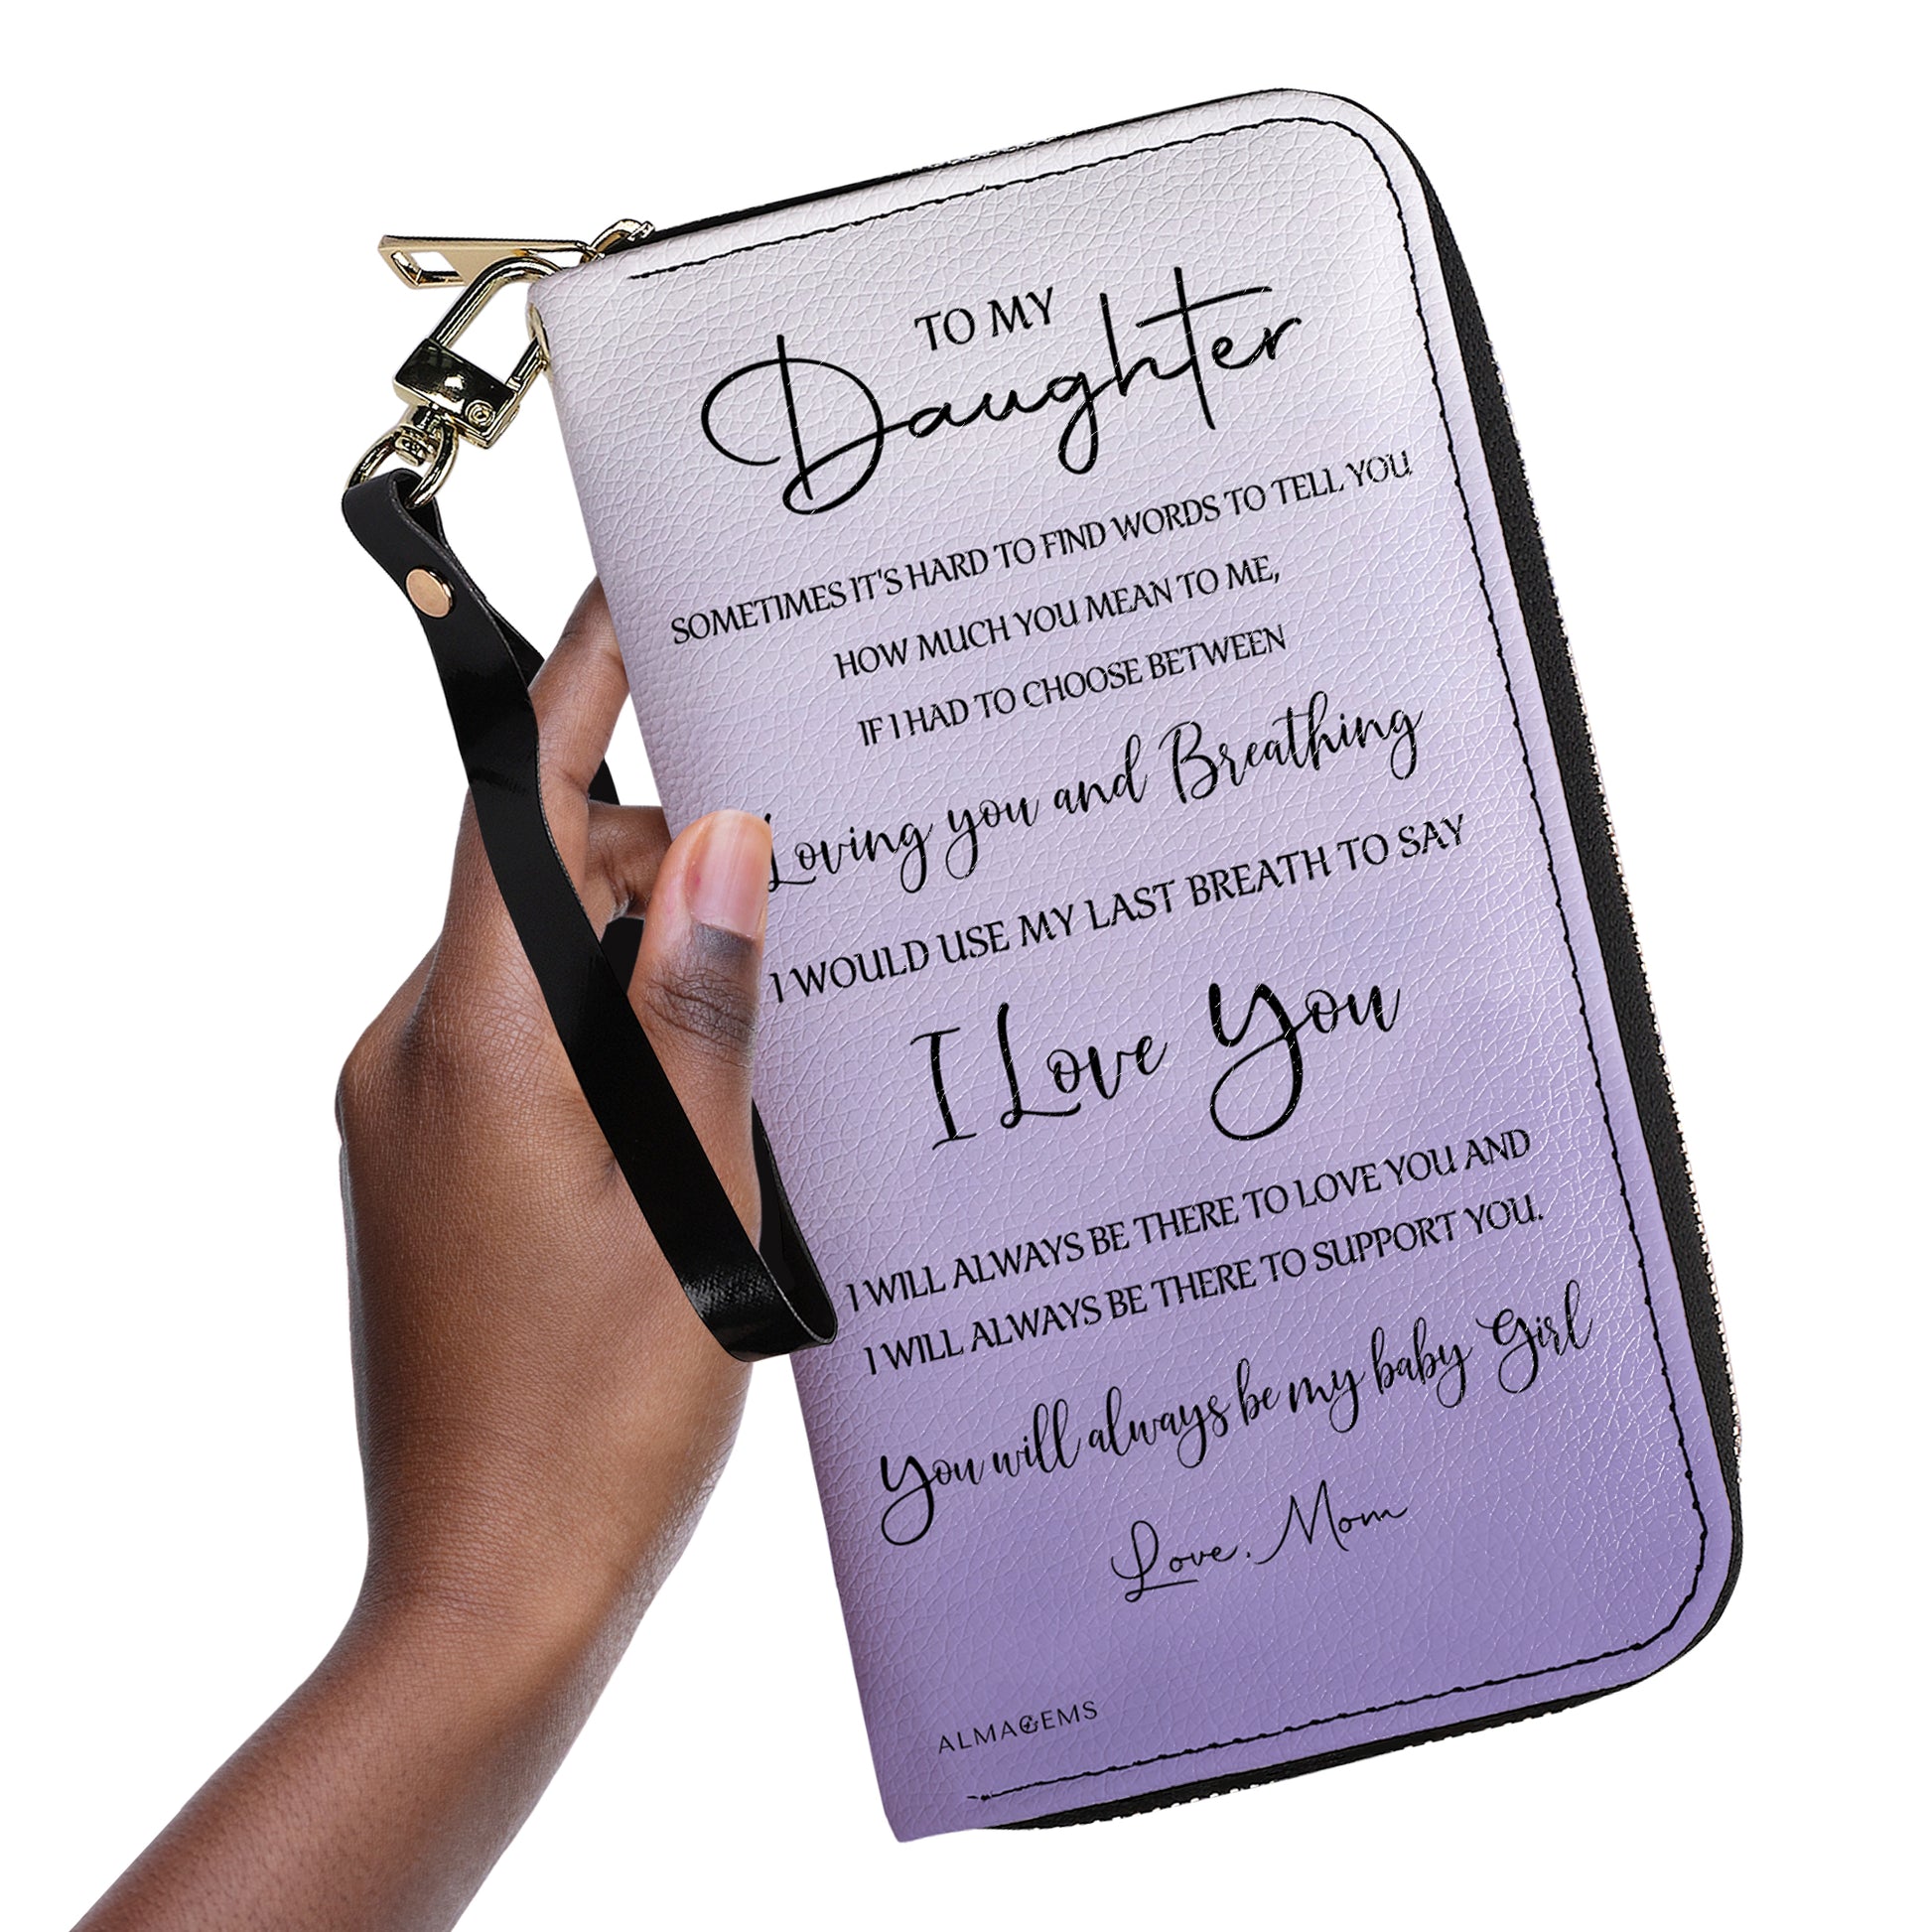 TO MY
Daughter
SOMETIMES IT'S HARD TO FIND WORDS TO TELL YOU
HOW MUCH YOU MEAN TO ME,
IF I HAD TO CHOOSE BETWEEN
Loving you and Breathing
I WOULD USE MY LAST BREATH TO SAY
I Love You
I WILL ALWAYS BE THERE TO LOVE YOU AND
I WILL ALWAYS BE THERE TO SUPPORT YOU.
You will always be my baby Girl
Love, Mom
ALMAGEMS